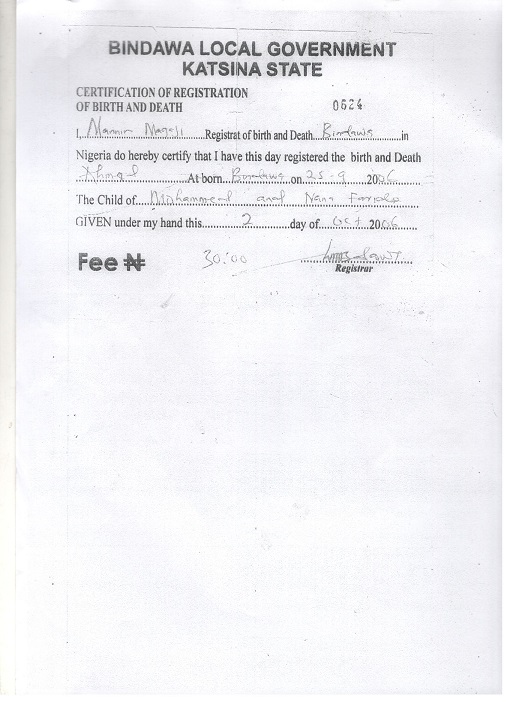 BINDAWA LOCAL GOVERNMENT
KATSINA STATE
CERTIFICATION OF REGISTRATION
OF BIRTH AND DEATH 0624
I, Mannir Registrat of birth and Death Bindawa in
Nigeria do hereby certify that I have this day registered the birth and Death
Ahmad At born Bindawa on 25-9 2006
The Child of Muhammed and Nana
GIVEN under my hand this 2 day of Oct 2006
Fee ₦ 30:00
Registrar